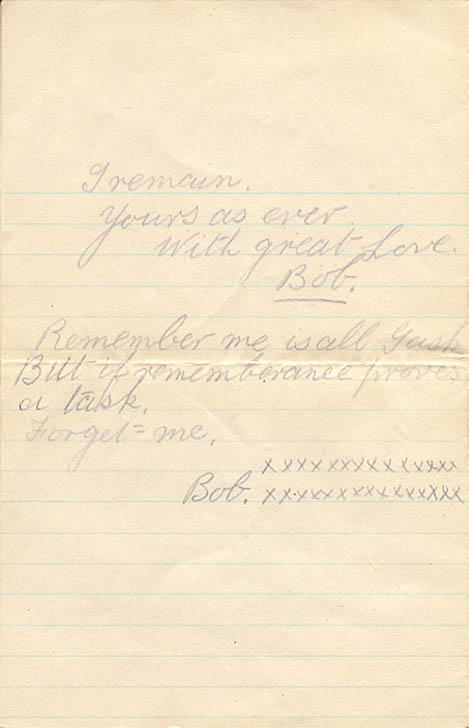 I remain.
Yours as ever.
With great Love.
Bob.
Remember me is all I ask
But if rememberance proves
a task.
Forget = me.
xxxxxxxxxxxxxxx
Bob. xxxxxxxxxxxxxxx